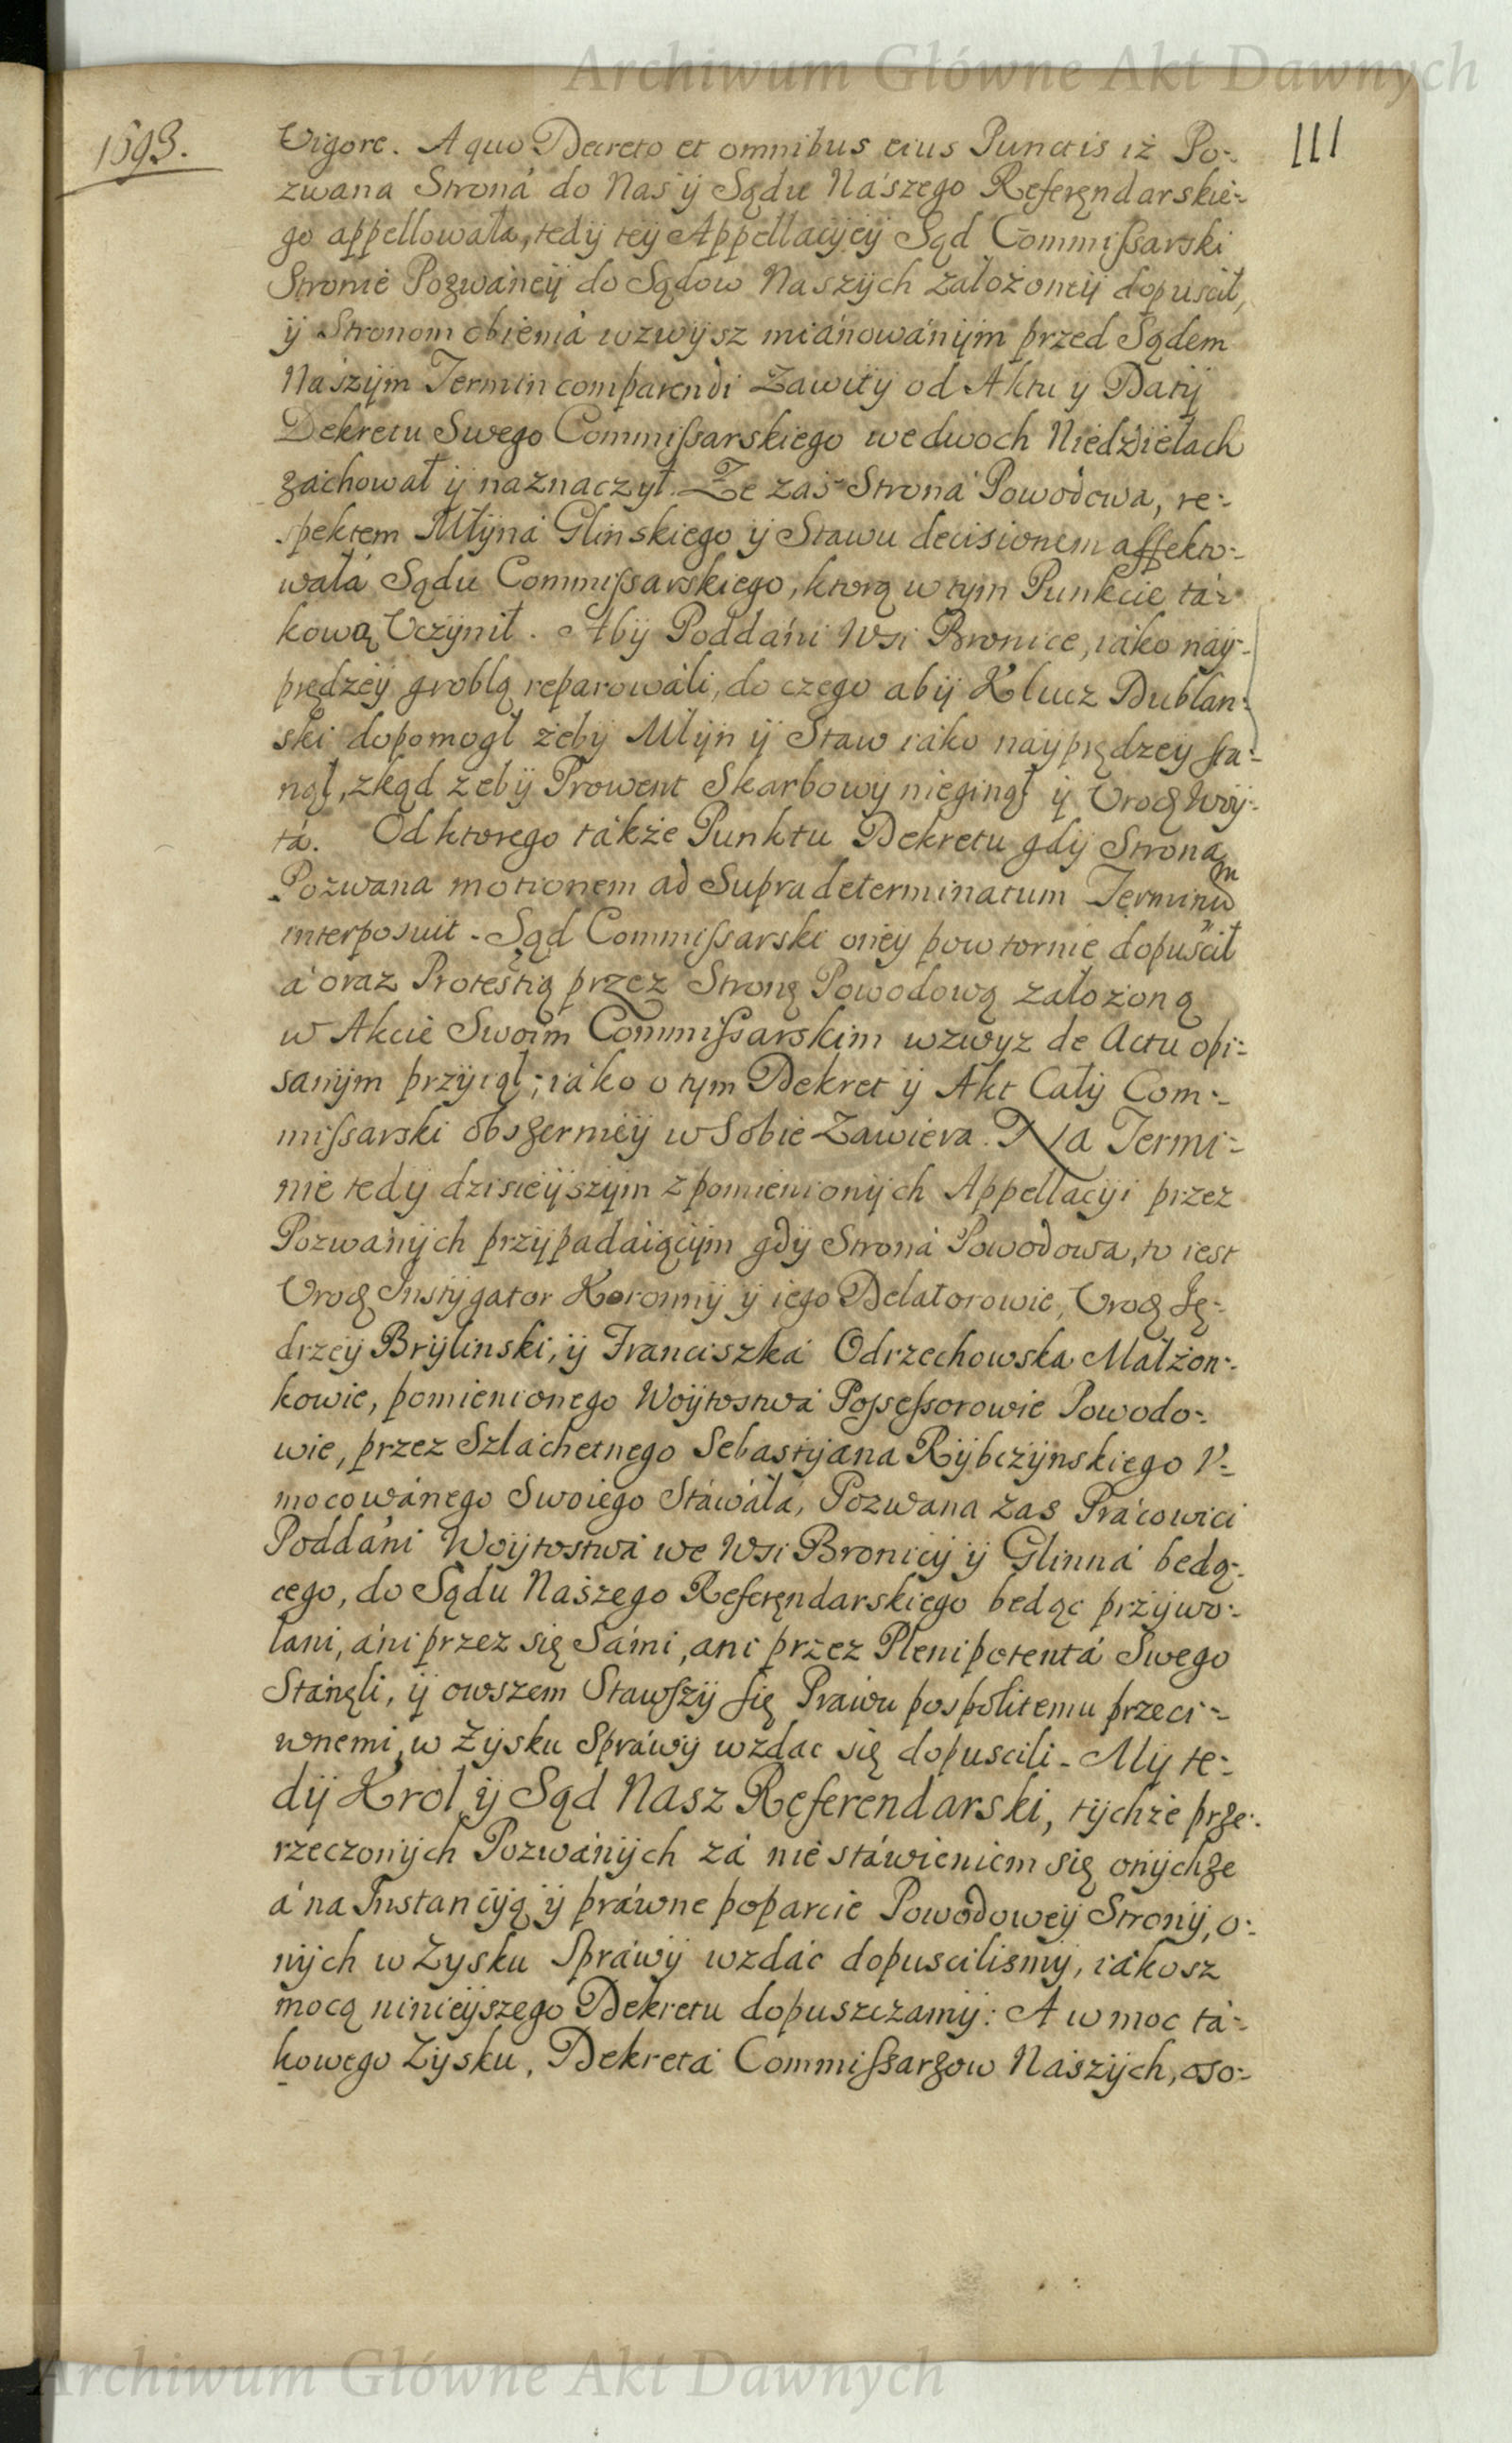 Archiwum Główne Akt Dawnych
1693.
111
Vigore. A quo Decreto et omnibus eius Punctis iż Po-
zwana Stroná do Nas ÿ Sądu Nászego Referęndarskie-
go appellowała, tedÿ teÿ Appellacÿeÿ Sąd Commißarski
Stronie Pozwáneÿ do Sądow Naszÿch założoneÿ dopuscił,
ÿ Stronom obiemá wzwÿsz miánowánÿm przed Sądem
Nászÿm Termin comparendi Zawitÿ od Aktu ÿ Datÿ
Dekretu Swego Commißarskiego wedwoch Niedzielach
záchował ÿ náznaczÿł. Ze zaś Stroná Powodowa, re-
spektem Młÿná Glinskiego ÿ Stawu decisionem affekto-
wałá Sądu Commißarskiego, ktorą w tym Punkcie tá-
kową Vczÿnił. Abÿ Poddáni Wsi Bronice, iáko náÿ-
prędzeÿ groblą reparowáli, do czego abÿ Klucz Dublan-
ski dopomogł żebÿ Młÿn ÿ Staw iáko naÿprędzeÿ sta-
nął, zkąd żebÿ Prowent Skarbowÿ nieginął ÿ Vrodz Wóÿ-
tá. Od ktorego tákże Punktu Dekretu gdÿ Strona
Pozwana motionem ad Supradeterminatum Terminum
interposuit - Sąd Commißarski oneÿ powtornie dopuścił
á oraz Protestią przez Stronę Powodową założoną
w Akcie Swoim Commißarskim wzwyz de Actu opi-
sanÿm przÿiął; iáko o tym Dekret ÿ Akt Całÿ Com-
mißarski obszernieÿ w Sobie Zawiera. Na Termi-
nie tedÿ dzisieÿszÿm z pomienionÿch Appellacÿi przez
Pozwánÿch przÿpadáiącÿm gdÿ Stroná Powodowa, to iest
Vrodz Instÿgator Koronnÿ ÿ iego Delatorowie, Vrodz Ję-
drzeÿ Brÿlinski, ÿ Franciszká Odrzechowska Małżon-
kowie, pomienionego Woÿtostwá Poßeßorowie Powodo-
wie, przez Szláchetnego Sebastÿana Rÿbczÿnskiego V-
mocowánego Swoiego Stáwáłá, Pozwana zas Prácowici
Poddáni Woÿtostwá we Wsi Bronicÿ ÿ Glinná bedą-
cego, do Sądu Nászego Referęndarskiego bedąc przÿwo-
łani, áni przez się Sámi, ani przez Plenipotentá Swego
Stánęli, ÿ owszem Stawszÿ się Práwu pospolitemu przeci-
wnemi, w Zÿsku Spráwÿ wzdac się dopuscili - Mÿ te-
dÿ Krol ÿ Sąd Nasz Referendarski, tÿchże prze-
rzeczonÿch Pozwánÿch zá nie stáwieniem się onÿchże
á na Instancÿą ÿ práwne poparcie Powodoweÿ Stronÿ, o-
nÿch w Zysku Spráwÿ wzdác dopuscilismÿ, iákosz
mocą ninieÿszego Dekretu dopuszczamÿ: A w moc tá-
kowego Zÿsku, Dekretá Commißarzow Nászÿch, oso-
Archiwum Główne Akt Dawnych